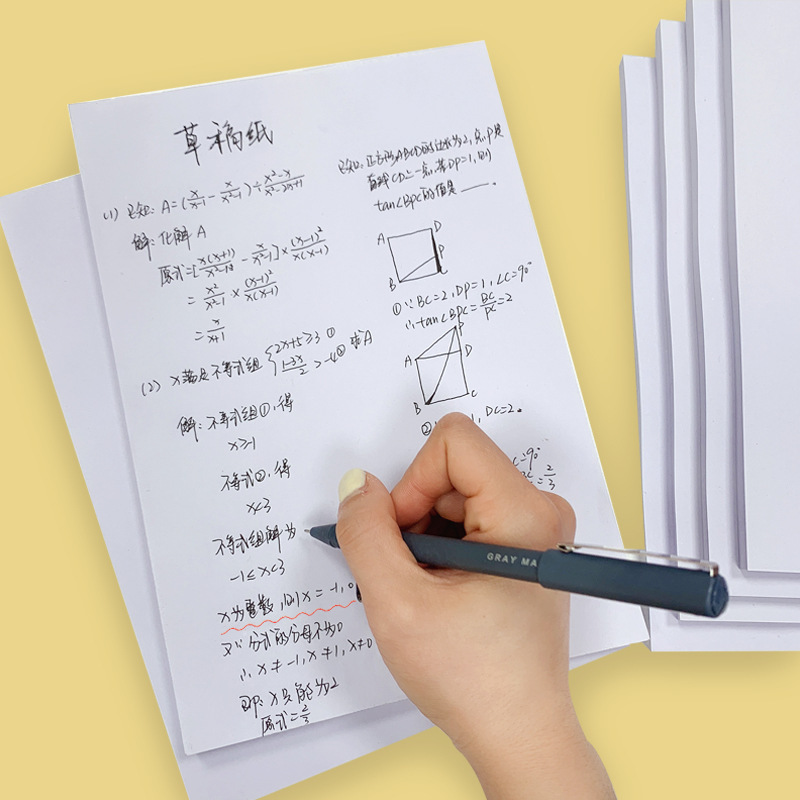 草稿纸
(1) 已知: A=(x/x-1 - x/x²-1)÷x²-x/x²-2x+1
解: 化解 A
原式=[x(x+1)/x²-1 - x/x²-1]×(x-1)²/x(x-1)
= x²/x²-1 × (x-1)²/x(x-1)
= x/x+1
(2) x满足不等式组{2x+5≥3① 1-3x/2>-4② 求A
解: 不等式组①,得
x≥-1
不等式②,得
x<3
不等式组解为
-1≤x<3
x为整数,则x=-1,0
又∵分式的分母不为0
∴x≠-1,x≠1,x≠0
即:x只能为2
原式=2/3
已知:正方形ABCD的边长为2,点P是
直线CD上一点,若DP=1,则
tan∠BPC的值是 ——。
A
D
P
B
C
①∵BC=2,DP=1,∠C=90°
∴tan∠BPC=BC/PC=2
P
A
D
B
C
②
1,DC=2。
C=90°
=2/3
GRAY MA